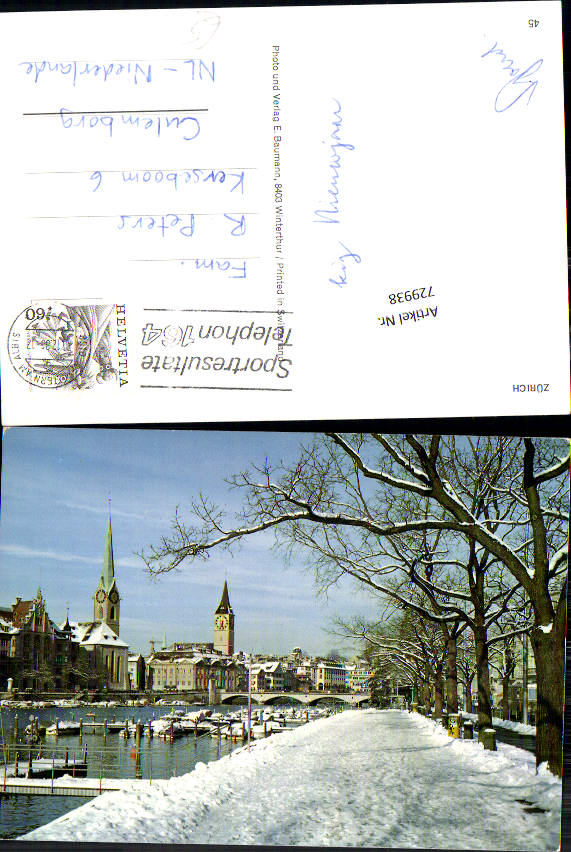 ZÜRICH
45
Artikel Nr.
729938
Nieuwjaar
Photo und Verlag E. Baumann, 8403 Winterthur / Printed in Switzerland
Sportresultate
Telephon 164
HELVETIA
60
Fam.
R. Peters
Kerseboom 6
Culemborg
NL - Niederlande